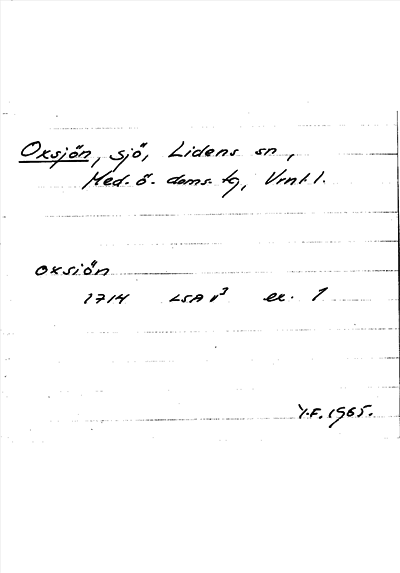 Oxsjön, sjö, Lidens sn,
Med. ö. doms. tg, Vrnl.l.
oxsiön
1714 LSA v³ ex. 1
Y.F. 1965.